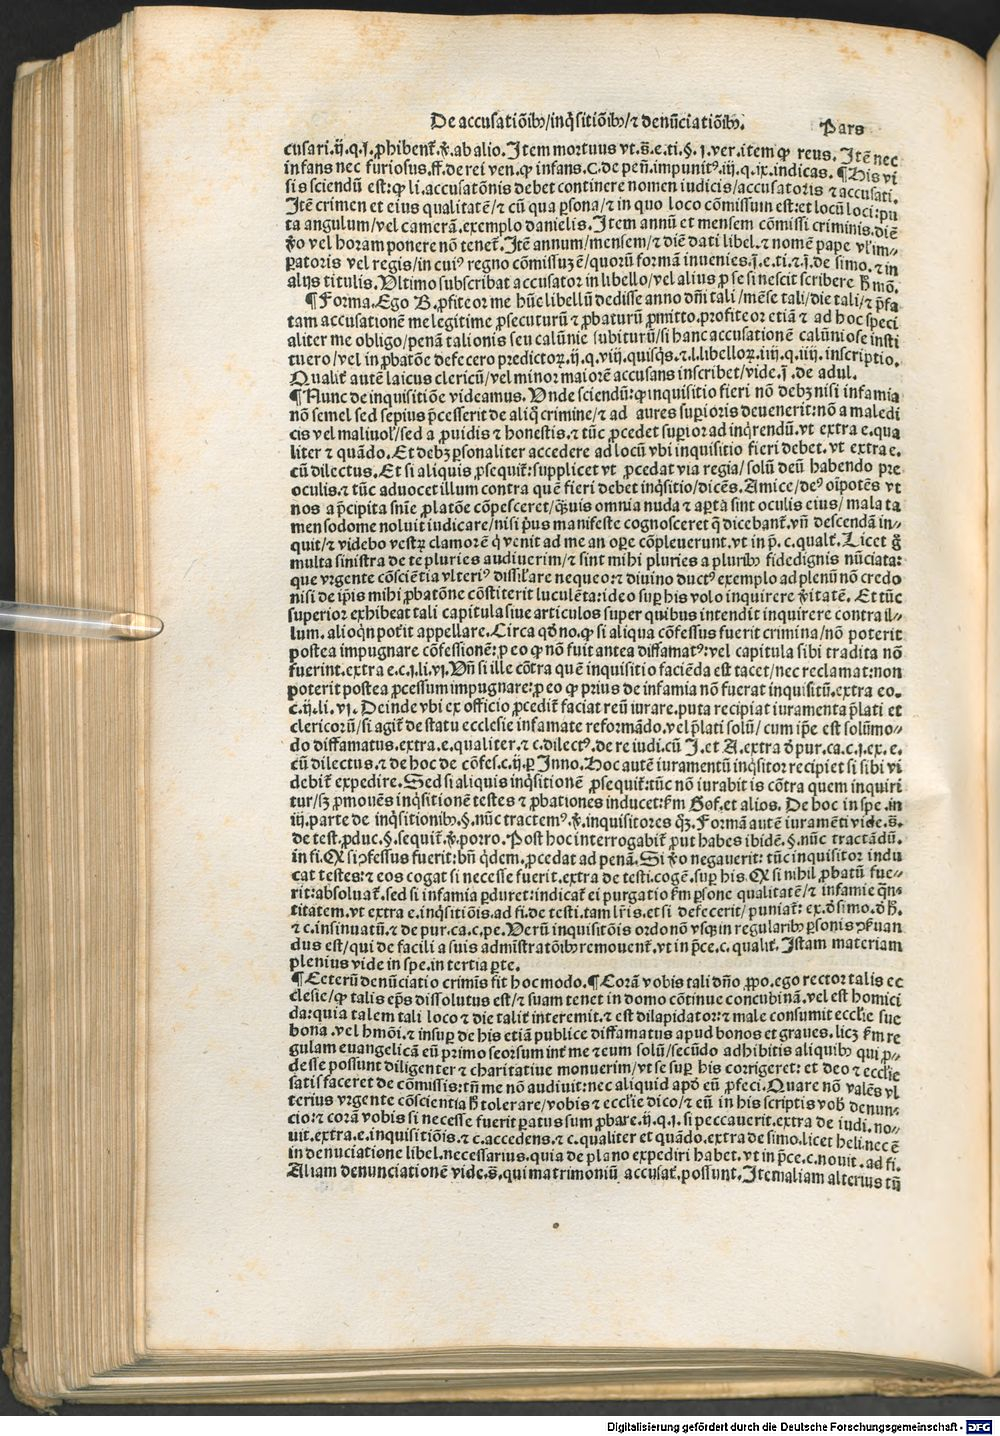 De accusatiōibꝫ/inq̄sitiōibꝫ/⁊ denūciatiōibꝫ.
Pars
cusari.ij.q.j.ꝓhibent̄.ꝟ.ab alio.Item mortuus vt.s̄.e.ti.§.j.ver.item ꝙ reus.Itē nec
infans nec furiosus.ff.de rei ven.ꝙ infans.C.de peñ.impunitꝰ.iij.q.ix.indicas.¶His vi
sis sciendū est:ꝙ li.accusatōnis debet continere nomen iudicis/accusatoris ⁊ accusati.
Itē crimen et eius qualitatē/⁊ cū qua ꝑsona/⁊ in quo loco cōmissum est:et locū loci:pu
ta angulum/vel camerā.exemplo danielis.Item annū et mensem cōmissi criminis.diē
ꝟo vel horam ponere nō tenet̄.Itē annum/mensem/⁊ diē dati libel.⁊ nomē pape vl̓ im⸗
ꝑatoris vel regis/in cuiꝰ regno cōmissuꝫ ē/quorū formā inuenies.j̄.e.ti.⁊.j̄.de simo.⁊ in
alijs titulis.Ultimo subscribat accusator in libello/vel alius ꝓ se si nescit scribere h̄ mō.
¶Forma.Ego B.ꝓfiteor me hūc libellū dedisse anno dñi tali/mēse tali/die tali/⁊ p̄fa
tam accusationē me legitime ꝓsecuturū ⁊ ꝓbaturū ꝓmitto.profiteor etiā ⁊ ad hoc speci
aliter me obligo/penā talionis seu calūnie subiturū/si hanc accusationē calūniose insti
tuero/vel in ꝓbatōe defecero predictoꝝ.ij.q.viij.quisq̄s.⁊.l.libelloꝝ.iiij.q.iiij.inscriptio.
Qualit̄ autē laicus clericū/vel minor maiorē accusans inscribet/vide.j̄.de adul.
¶Nunc de inquisitiōe videamus.Unde sciendū:ꝙ inquisitio fieri nō debꝫ nisi infamia
nō semel sed sepius p̄cesserit de aliq̄ crimine/⁊ ad aures suꝑioris deuenerit:nō a maledi
cis vel maliuol̓/sed a ꝓuidis ⁊ honestis.⁊ tūc ꝓcedet suꝑior ad inq̄rendū.vt extra e.qua
liter ⁊ quādo.Et debꝫ ꝑsonaliter accedere ad locū vbi inquisitio fieri debet.vt extra e.
cū dilectus.Et si aliquis ꝓsequit̄:supplicet vt ꝓcedat via regia/solū deū habendo pre
oculis.⁊ tūc aduocet illum contra quē fieri debet inq̄sitio/dicēs.Amice/deꝰ oīpotēs vt
nos a p̄cipita snīe ꝓlatōe cōpesceret/q̄uis omnia nuda ⁊ aꝑta sint oculis eius/mala ta
men sodome noluit iudicare/nisi pⁱus manifeste cognosceret q̄ dicebant̄.vn̄ descendā in⸗
quit/⁊ videbo vestꝝ clamorē q̄ venit ad me an oꝑe cōpleuerunt.vt in p̄.c.qualt̄.Licet g̊
multa sinistra de te pluries audiuerim/⁊ sint mihi pluries a pluribꝫ fidedignis nūciata:
que vrgente cōsciētia vlteriꝰ dissil̓are nequeo:⁊ diuino ductꝰ exemplo ad plenū nō credo
nisi de ip̄is mihi ꝓbatōne cōstiterit luculēta:ideo suꝑ his volo inquirere ꝟitatē.Et tūc
superior exhibeat tali capitula siue articulos super quibus intendit inquirere contra il⸗
lum.alioq̄n pot̄it appellare.Circa qd̄ no.ꝙ si aliqua cōfessus fuerit crimina/nō poterit
postea impugnare cōfessionē:ꝑ eo ꝙ nō fuit antea diffamatꝰ:vel capitula sibi tradita nō
fuerint.extra e.c.j.li.vj.Un̄ si ille cōtra quē inquisitio faciēda est tacet/nec reclamat:non
poterit postea ꝓcessum impugnare:ꝑ eo ꝙ prius de infamia nō fuerat inquisitū.extra eo.
c.ij.li.vj.Deinde vbi ex officio ꝓcedit̄ faciat reū iurare.puta recipiat iuramenta p̄lati et
clericorū/si agit̄ de statu ecclesie infamate reformādo.vel p̄lati solū/cum ip̄e est solūmo⸗
do diffamatus.extra.e.qualiter.⁊ c.dilectꝰ.de re iudi.cū I.et A.extra ď pur.ca.c.j.ex.e.
cū dilectus.⁊ de hoc de cōfes.c.ij.ꝑ Inno.Hoc autē iuramentū inq̄sitor recipiet si sibi vi
debit̄ expedire.Sed si aliquis inq̄sitionē ꝓsequit̄:tūc nō iurabit is cōtra quem inquiri
tur/sꝫ ꝓmouēs inq̄sitionē testes ⁊ ꝓbationes inducet:ẜm Gof.et alios.De hoc in spe.in
iij.parte de inq̄sitionibꝫ.§.nūc tractemꝰ.ꝟ.inquisitores q̄ꝫ.Formā autē iuramēti vide.s̄.
de test.ꝓduc.§.sequit̄.ꝟ.porro.Post hoc interrogabit̄ ꝓut habes ibidē.§.nūc tractādū.
in fi.Qꝫ si ꝯfessus fuerit:bn̄ q̄dem.ꝓcedat ad penā.Si ꝟo negauerit:tūc inquisitor indu
cat testes:⁊ eos cogat si necesse fuerit.extra de testi.cogē.suꝑ his.Qꝫ si nihil ꝓbatū fue⸗
rit:absoluat̄.sed si infamia ꝑduret:indicat̄ ei purgatio ẜm ꝑsone qualitatē/⁊ infamie q̄n⸗
titatem.vt extra e.inq̄sitiōis.ad fi.de testi.tam lr̄is.et si defecerit/puniat̄:ex.ď simo.ď h̄.
⁊ c.insinuatū.⁊ de pur.ca.c.pe.Verū inquisitōis ordo nō vsqꝫ in regularibꝫ ꝑsonis ꝯẜuan
dus est/qui de facili a suis admīstratōibꝫ remouent̄.vt in p̄ce.c.qualit̄.Istam materiam
plenius vide in spe.in tertia ꝑte.
¶Ceterū denūciatio crimīs fit hoc modo.¶Corā vobis tali dño ꝓpo.ego rector talis ec
clesie/ꝙ talis ep̄s dissolutus est/⁊ suam tenet in domo cōtinue concubinā.vel est homici
da:quia talem tali loco ⁊ die talit̄ interemit.⁊ est dilapidator:⁊ male consumit eccl̓ie sue
bona.vel hmōi.⁊ insuꝑ de his etiā publice diffamatus apud bonos et graues.licꝫ ẜm re
gulam euangelicā eū primo seorsum int̄ me ⁊ eum solū/secūdo adhibitis aliquibꝫ qui ꝓ⸗
desse possunt diligenter ⁊ charitatiue monuerim/vt se suꝑ his corrigeret:et deo ⁊ eccl̓ie
satisfaceret de cōmissis:tn̄ me nō audiuit:nec aliquid apd̄ eū ꝓfeci.Quare nō valēs vl
terius vrgente cōscientia h̄ tolerare/vobis ⁊ eccl̓ie dico/⁊ eū in his scriptis vob̄ denun⸗
cio:⁊ corā vobis si necesse fuerit ꝑatus sum ꝓbare.ij.q.j.si peccauerit.extra de iudi.no⸗
uit.extra.e.inquisitiōis.⁊ c.accedens.⁊ c.qualiter et quādo.extra de simo.licet heli.nec ē
in denuciatione libel.necessarius.quia de plano expediri habet.vt in p̄ce.c.nouit.ad fi.
Aliam denunciationē vide.s̄.qui matrimoniū accusat̄.possunt.Item aliam alterius tn̄
Digitalisierung gefördert durch die Deutsche Forschungsgemeinschaft - DFG